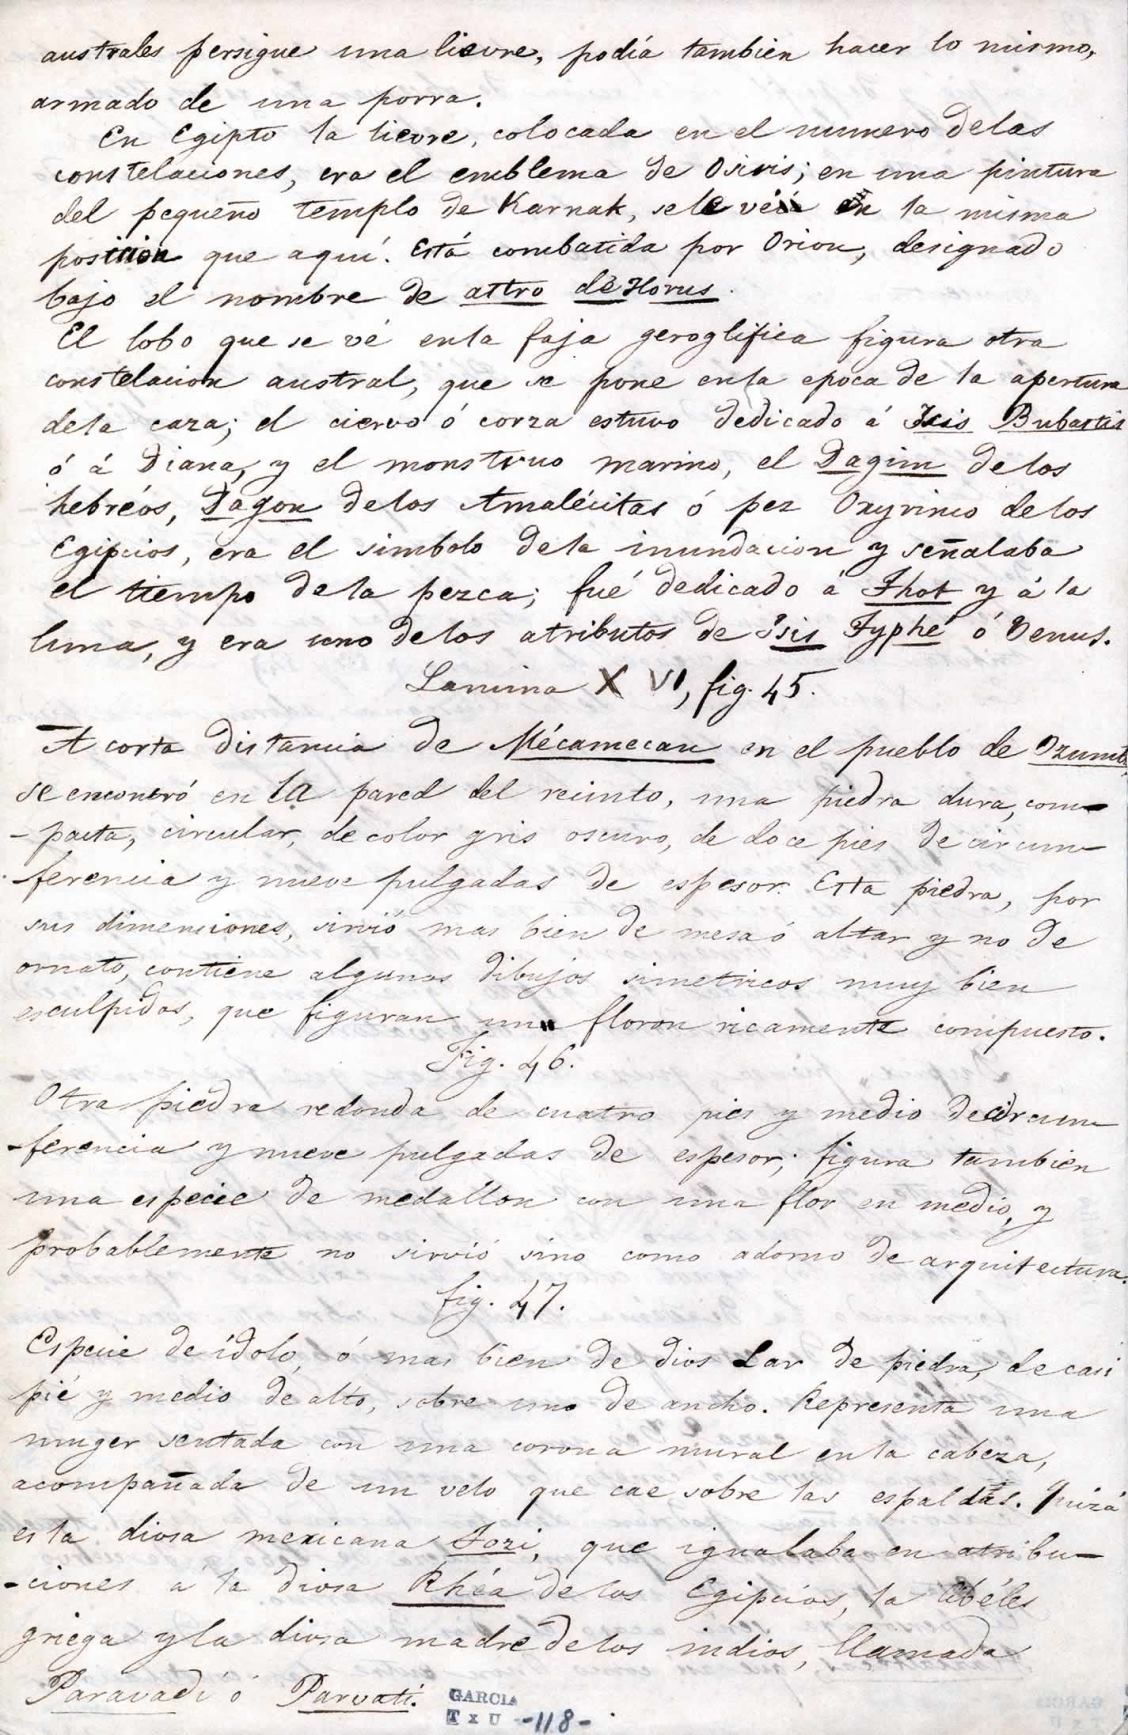 australes persigue una lievre, podía tambien hacer lo mismo,
armado de una porra.
En Egipto la lievre, colocada en el numero delas
constelaciones, era el emblema de Osiris; en una pintura
del pequeño templo de Karnak, sele veía en la misma
posicion que aquí. Está combatida por Orion, designado
bajo el nombre de attro de Horus.
El lobo que se vé enla faja geroglifica figura otra
constelacion austral, que se pone enla epoca de la apertura
dela caza; el ciervo ó corza estuvo dedicado á Isis Bubastis
ó á Diana, y el monstruo marino, el Dagim de los
hebréos, Dagon delos Amalécitas ó pez Oxyrinco de los
Egipcios, era el simbolo dela inundacion y señalaba
el tiempo dela pezca; fué dedicado á Thot y á la
luna, y era uno delos atributos de Isis Typhé ó Venus.
Lamina X VI, fig. 45.
A corta distancia de Mécamecan en el pueblo de Ozumba,
se encontró en la pared del recinto, una piedra dura, com-
-pacta, circular, de color gris oscuro, de doce pies de circun-
ferencia y nueve pulgadas de espesor. Esta piedra, por
sus dimenciones, sirvió mas bien de mesa ó altar y no de
ornato, contiene algunos dibujos simetricos muy bien
esculpidos, que figuran un floron ricamente compuesto.
Fig. 46.
Otra piedra redonda de cuatro pies y medio de circun-
-ferencia y nueve pulgadas de espesor; figura tambien
una especie de medallon con una flor en medio, y
probablemente no sirvió sino como adorno de arquitectura.
fig. 47.
Especie de ídolo, ó mas bien de dios Lar de piedra, de casi
pié y medio de alto, sobre uno de ancho. Representa una
muger sentada con una corona mural enla cabeza,
acompañada de un velo que cae sobre las espaldas. Quizá
es la diosa mexicana Tozi, que igualaba en atribu-
-ciones á la diosa Rhéa delos Egipcios, la Cibéles
griega y la diosa madre delos indios, llamada
Paravadi ó Parvati.
GARCIA
T x U -118-.